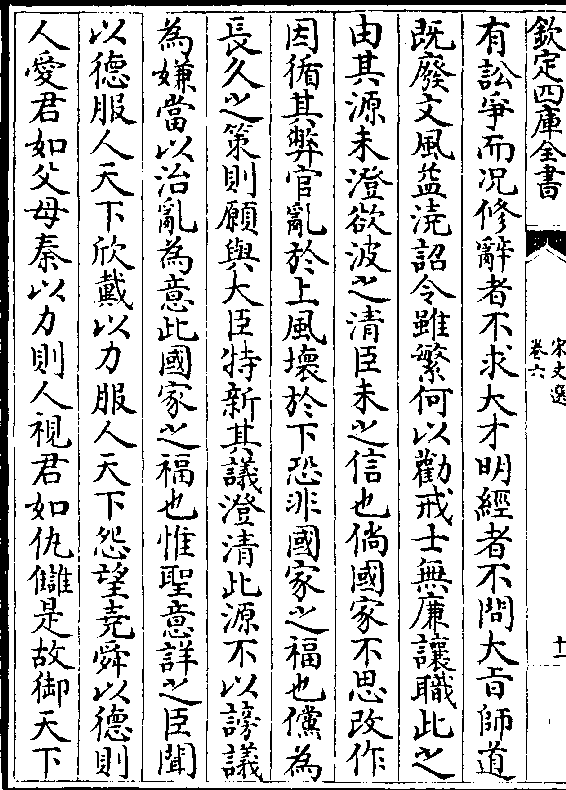 欽定四庫全書
宋文選
卷六
十一
有訟爭而况修辭者不求大才明經者不問大旨師道
既廢文風益澆詔令雖繁何以勸戒士無廉讓職此之
由其源未澄欲波之清臣未之信也倘國家不思改作
因循其弊官亂於上風壞於下恐非國家之福也儻為
長久之策則願與大臣特新其議澄清此源不以謗議
為嫌當以治亂為意此國家之福也惟聖意詳之臣聞
以德服人天下欣戴以力服人天下怨望堯舜以德則
人愛君如父母秦以力則人視君如仇讎是故御天下